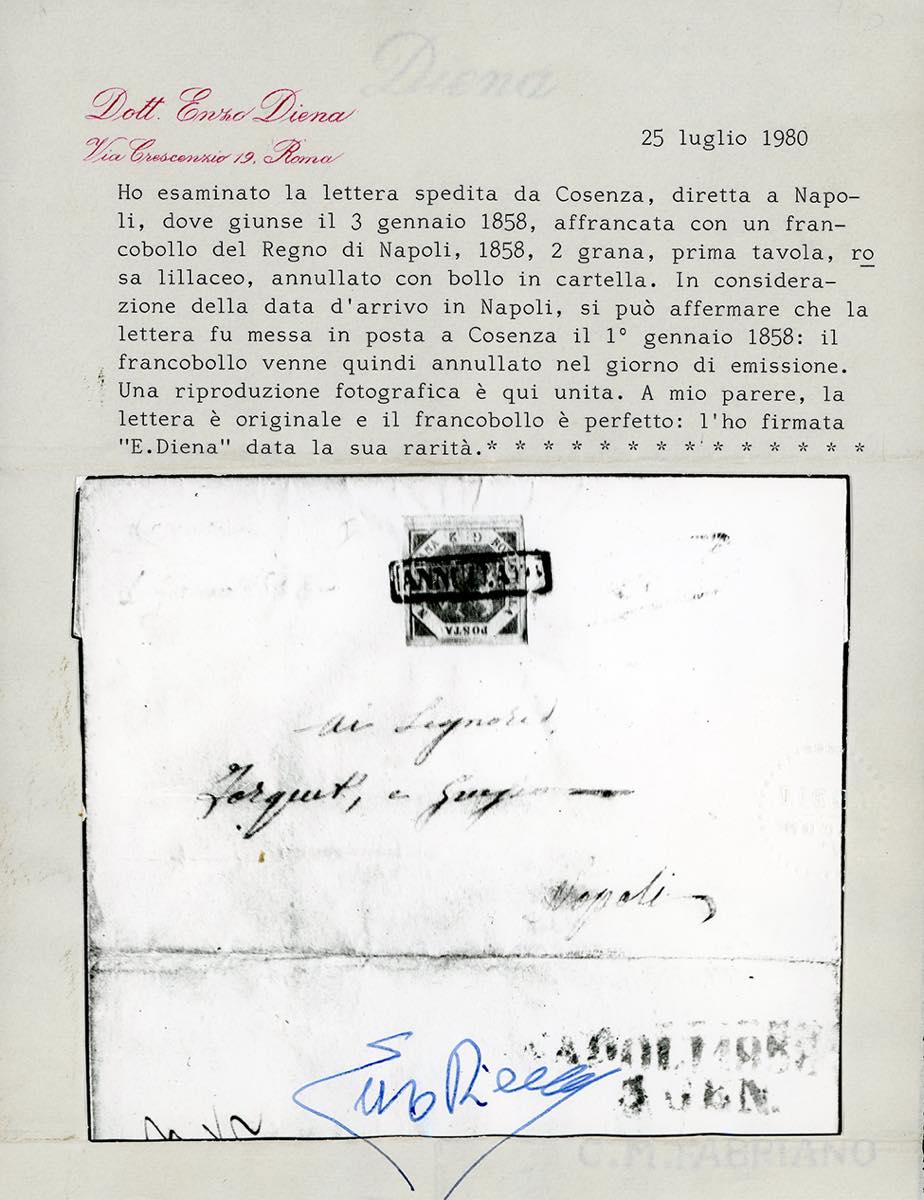 Diena
Dott. Enzo Diena
Via Crescenzio 19, Roma
25 luglio 1980
Ho esaminato la lettera spedita da Cosenza, diretta a Napo-
li, dove giunse il 3 gennaio 1858, affrancata con un fran-
cobollo del Regno di Napoli, 1858, 2 grana, prima tavola, ro
sa lillaceo, annullato con bollo in cartella. In considera-
zione della data d'arrivo in Napoli, si può affermare che la
lettera fu messa in posta a Cosenza il 1° gennaio 1858: il
francobollo venne quindi annullato nel giorno di emissione.
Una riproduzione fotografica è qui unita. A mio parere, la
lettera è originale e il francobollo è perfetto: l'ho firmata
"E.Diena" data la sua rarità.* * * * * * * * * * * * * *
G. 2
ANNULLATO
POSTA
Napoli
3 JEN.
Enzo Diena
C.M.FABRIANO